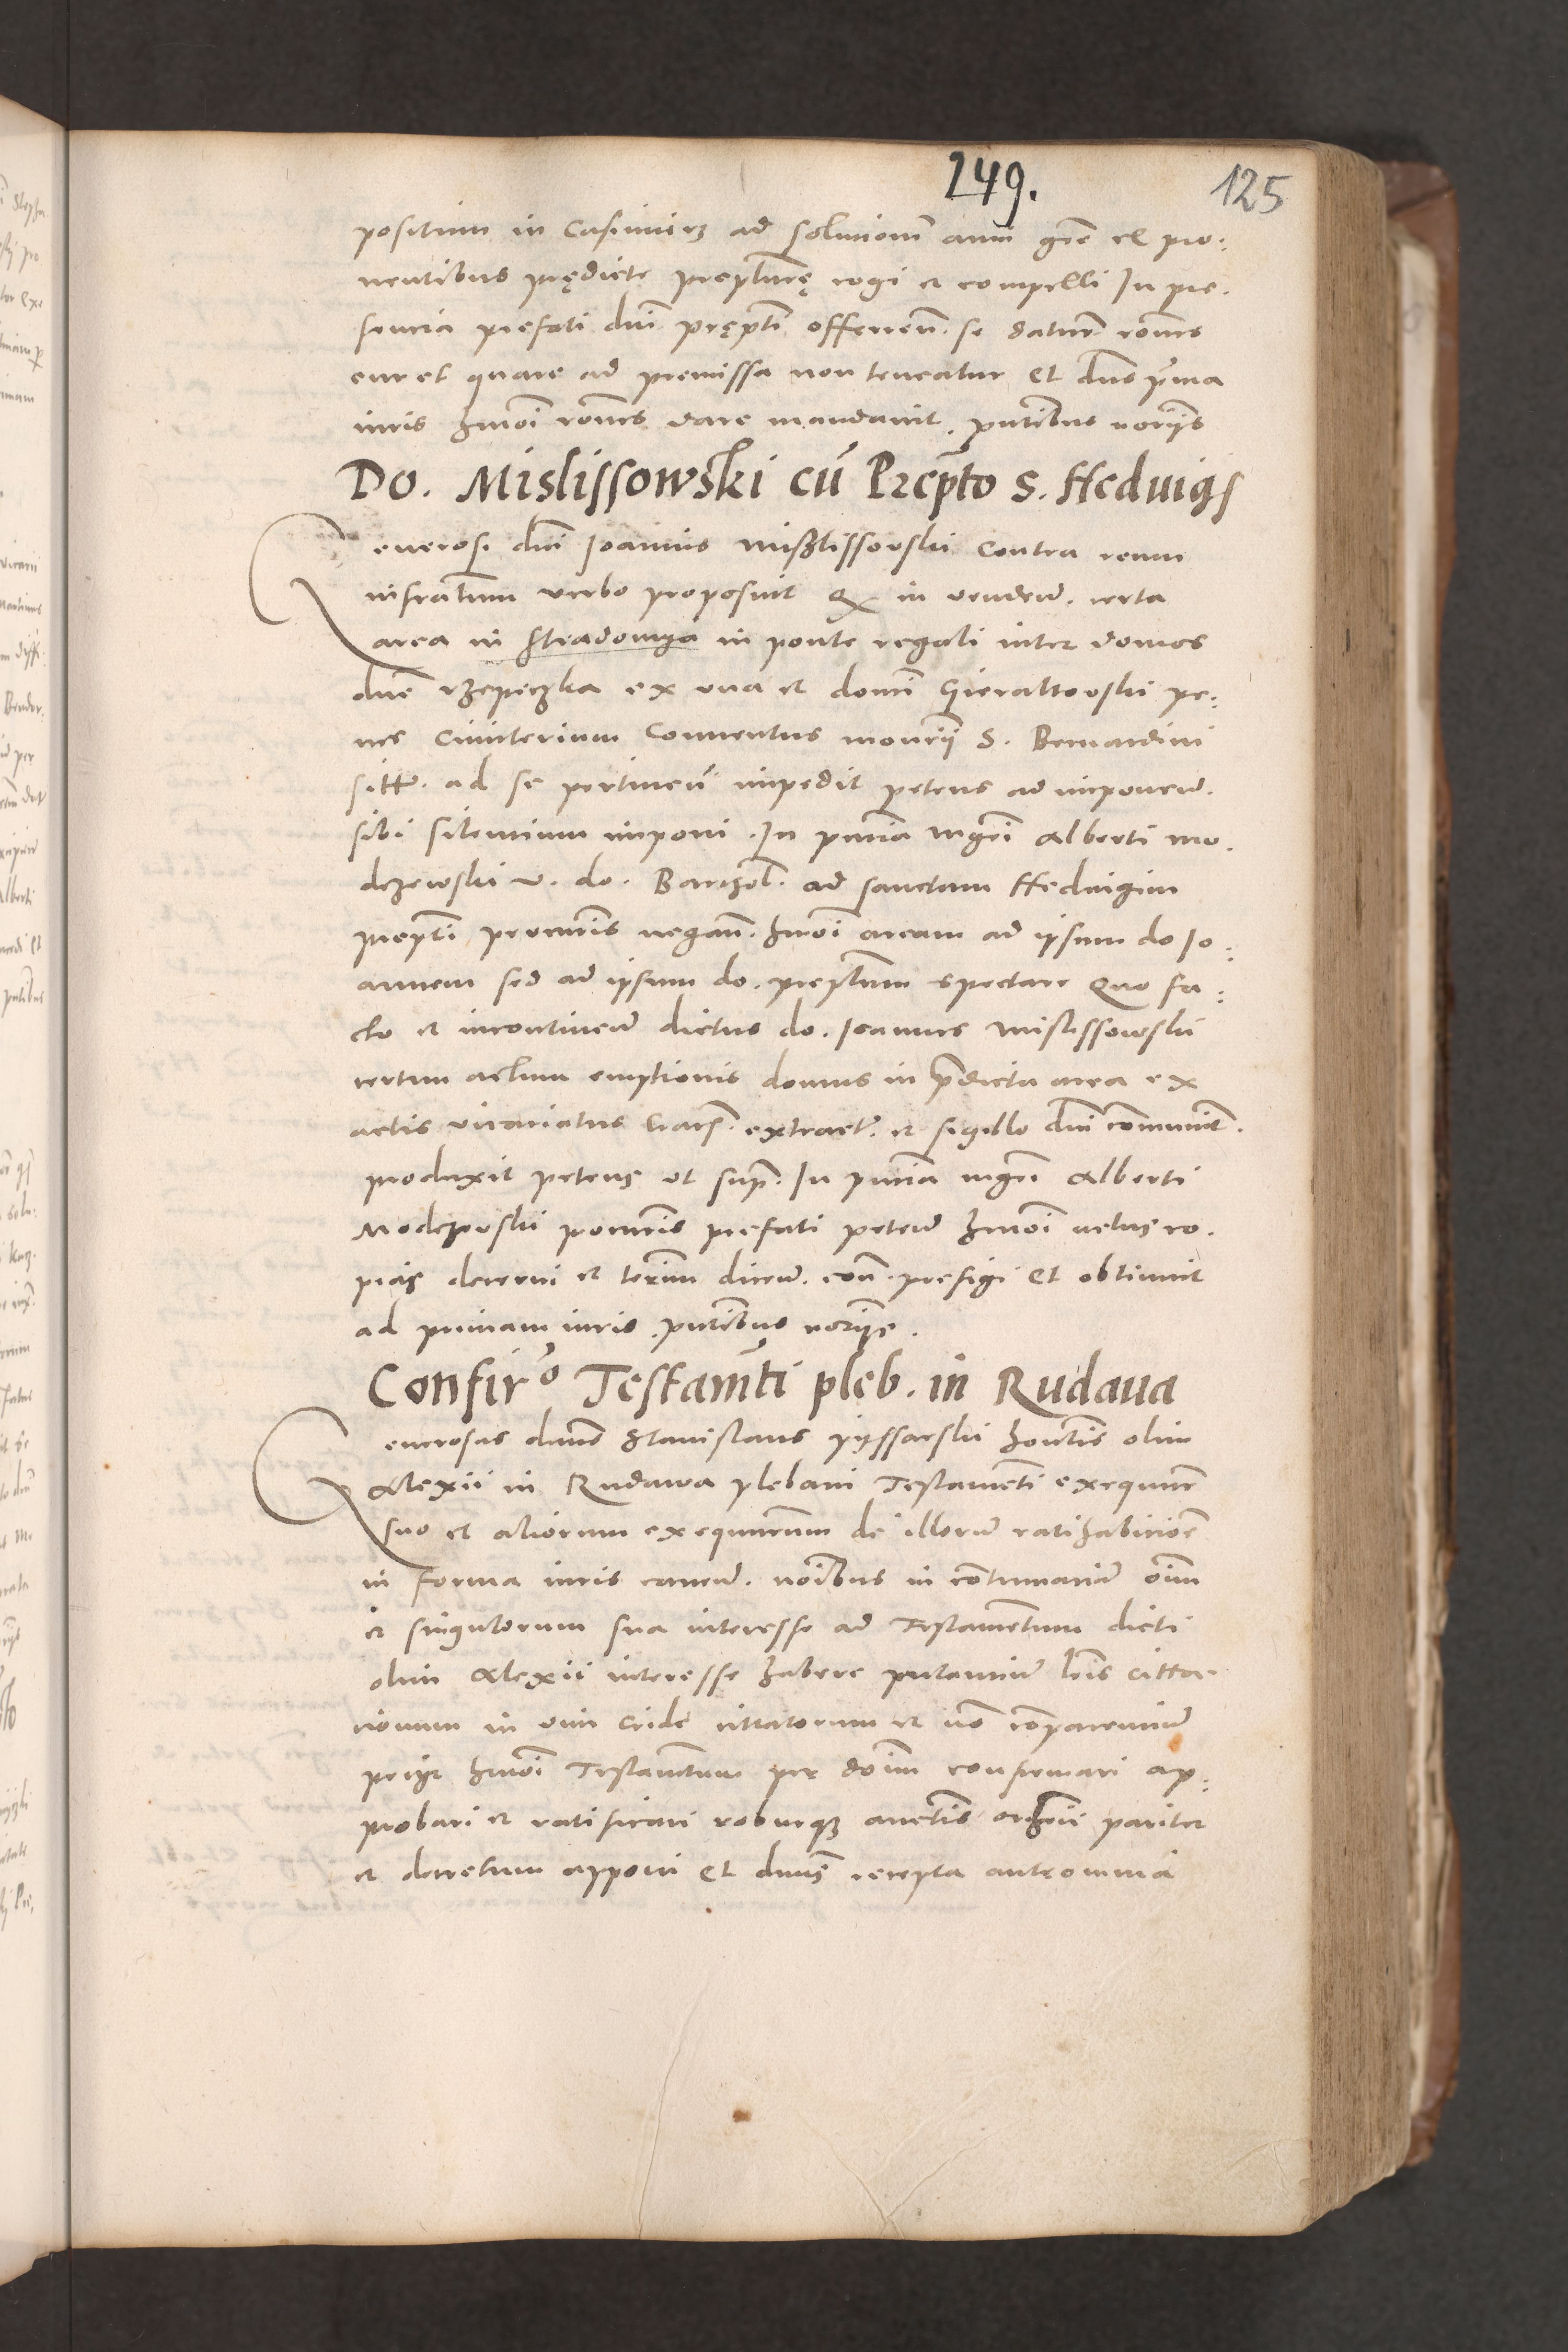 249.
125
positum in Casimirz ad solucionem anni gnae el pro:
uentibus prędicte prepturę cogi et compelli In pre.
sencia prefati dni prępti offeren. se datur rones
cur et quare ad premissa non teneatur Et dns pma
iuris hmoi rones dare mandauit. pntibus noriis
Do. Mislissowski cū Prepto S. Heduigs
Generosi dni Joannis Mißlissowski Contra reum
infratum verbo proposuit Qz in vendend. certa
area in Stradomya in ponte regali inter domos
dne rzepeczka ex vna et domi Gieraltowski pe:
nes Cimiterium Conuentus monrii S. Bernardini
sitt. ad se pertinen impedit petens ad imponend.
sibi silencium imponi. In pntia mgri Alberti mo.
drzewski v. do. Barthol. ad sanctam Heduigim
prepti procuris negan. hmoi aream ad ipsum do Jo:
annem sed ad ipsum do. preptum spectare Quo fa:
cto et incontinen dictus do. Joannes Mislissowski
certum actum emptionis domus in pdicta area ex
actis vicariatus Cracs. extract. et sigillo dni communit.
produxit petens vt supra. In pntia mgri Alberti
Modrzewski procuris prefati peten hmoi actus co.
pias decerni et termin dicen. con. prefigi Et obtinuit
ad primam iuris. pntibus noriis.
Confiro Testamti pleb. in Rudaua
Generosus dnus Stanislaus pyssarski hontis olim
Alexii in Rudawa plebani Testamenti exequutor
suo et aliorum exequutorum de illorum ratihabicioe
in forma iuris cauen. noibus in contumaciam oium
et singulorum sua interesse ad Testamentum dicti
olim Alexii interesse habere putancium lris citta
cionum in vim cride cittatorum et no comparencium
peciit hmoi Testamentum per dnm confirmari ap:
probari et ratificari roburqz auctis ordinarii pariter
et decretum apponi Et dnus recepta anteomnia